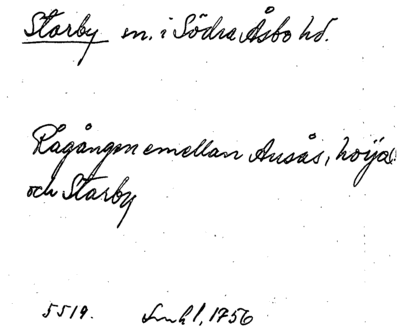 Starby m. i Södra Åsbo hd.
Rågången emellan Ausås, höja
och Starby
5519. 1756